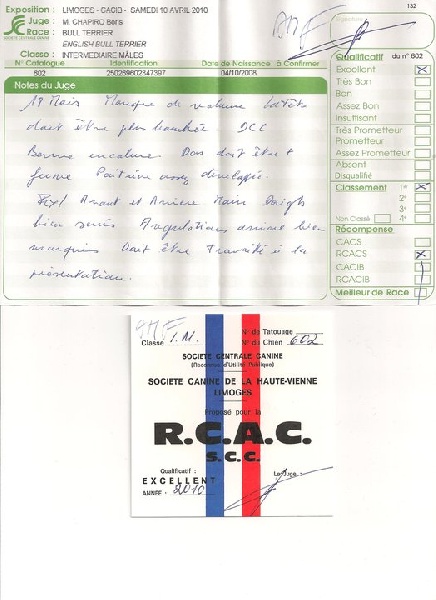 Exposition : LIMOGES - CACIB - SAMEDI 10 AVRIL 2010
Juge : M. CHAPIRO Boris
Race : BULL TERRIER
ENGLISH BULL TERRIER
Classe : INTERMEDIAIRE MÂLES
N° Catalogue Identification Date de Naissance à Confirmer
602 250269602347397 04/10/2008
Notes du Juge
18 Mois Manque de volume
doit être
Bonne encolure Dos doit être +
ferme Poitrine assez
Avant et Arrière main
bien Angulations arrière bien
doit être Travaillé à la
présentation.
152
Signature
Qualificatif du n° 602
Excellent
Très Bon
Bon
Assez Bon
Insuffisant
Très Prometteur
Prometteur
Assez Prometteur
Absent
Disqualifié
Classement 1er
2e
3e
Non Classé 4e
Récompense
CACS
RCACS
CACIB
RCACIB
Meilleur de Race
N° de Tatouage
Classe I.M. N° de Chien 602
SOCIETE CENTRALE CANINE
(Reconnue d'Utilité Publique)
SOCIETE CANINE DE LA HAUTE-VIENNE
LIMOGES
Proposé pour la
R.C.A.C.
S.C.C.
Qualificatif : Le Juge,
EXCELLENT
ANNÉE - 2010